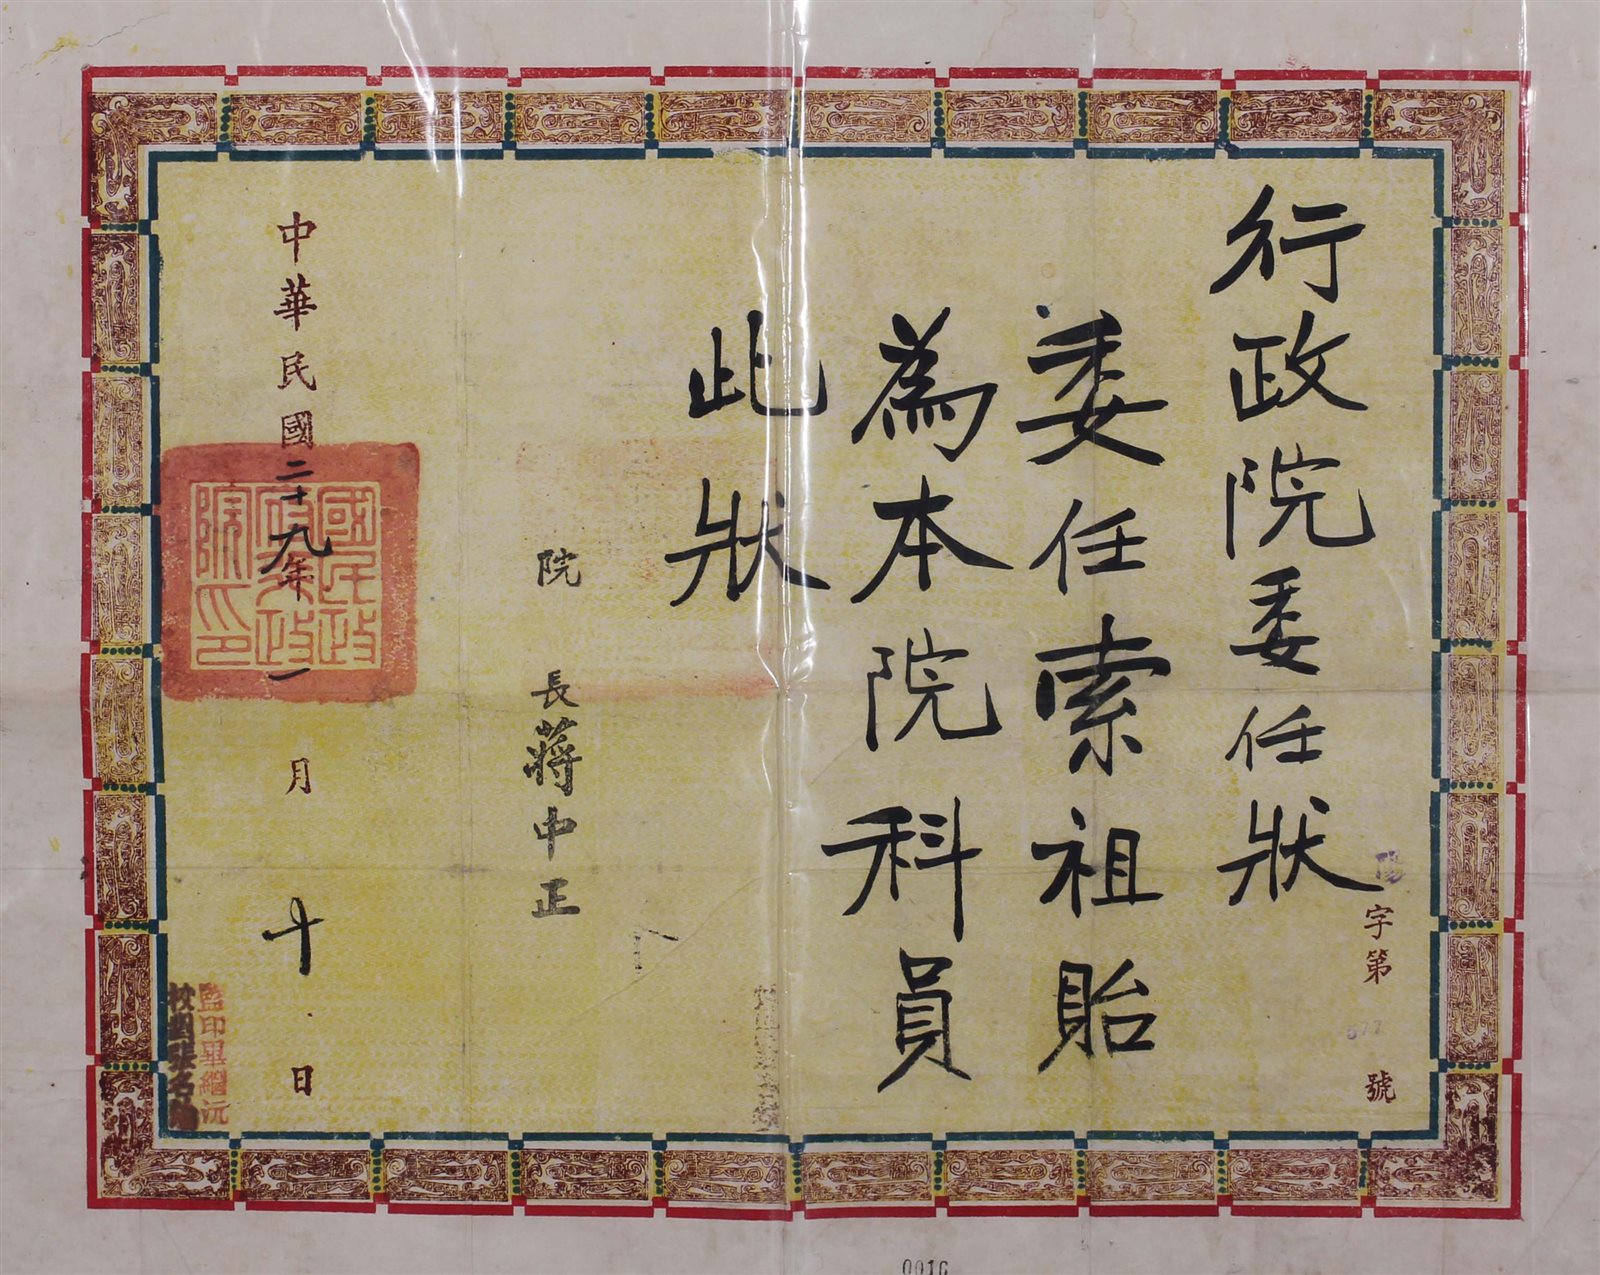 行政院委任狀
委任索祖貽
為本院科員
此狀
院長蔣中正
中華民國二十九年一月十日
陽字第577號
國民政府行政院印
監印畢繼沅
校對張名
0016